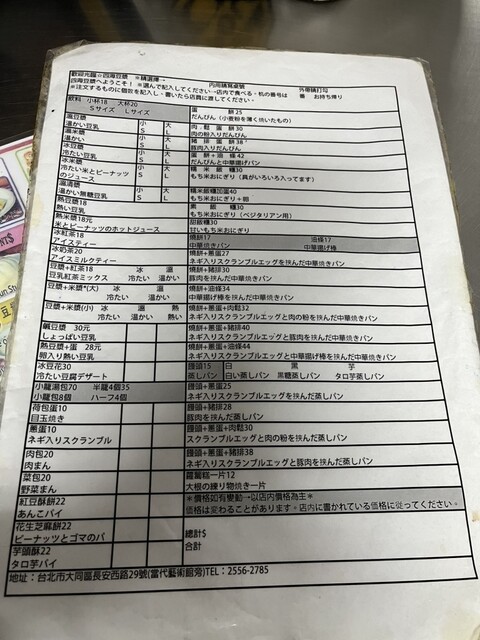 歡迎光臨☆四海豆漿 ※請選擇→ 內用請寫桌號 外帶請打勾
四海豆漿へようこそ！ ※選んで記入してください→店內で食べる・机の番号は 番 お持ち帰り
※注文するものに個数を記入し、書いたら店員に渡してください。
飲料 小杯18 大杯20
Sサイズ Lサイズ
溫豆漿 小 大
温かい豆乳 S L
溫米漿 小 大
温かい S L
冰豆漿 小 大
冷たい豆乳 S L
冰米漿 小 大
冷たい米とピーナッツ S L
のジュース
溫清漿 小 大
温かい無糖豆乳 S L
熱豆漿18
熱い豆乳
熱米漿18元
米とピーナッツのホットジュース
冰紅茶18
アイスティー
冰奶茶20
アイスミルクティー
豆漿+紅茶18 冰 溫
豆乳紅茶ミックス 冷たい 温かい
豆漿+米漿*(大) 冰 溫
冷たい 温かい
豆漿+米漿(小) 冰 溫 熱
冷たい 温かい 熱い
鹹豆漿 30元
しょっぱい豆乳
熱豆漿+蛋 28元
卵入り熱い豆乳
冰豆花30
冷たい豆腐デザート
小籠湯包70 半籠4個35
小龍包8個 ハーフ4個
荷包蛋10
目玉焼き
蔥蛋10
ネギ入りスクランブル
肉包20
肉まん
菜包20
野菜まん
紅豆酥餅22
あんこパイ
花生芝麻餅22
ピーナッツとゴマのパ
芋頭酥22
タロ芋パイ
蛋 餅25
だんぴん(小麦粉を薄く焼いたもの)
肉.鬆 蛋 餅30
肉の粉入りだんぴん
豬 排 蛋 餅38
豚肉入りだんぴん
蛋 餅+油 條42
だんぴんと中華揚げパン
糯 米 飯 糰30
もち米おにぎり(具がいろいろ入ってます)
糯米飯糰加蛋40
もち米おにぎり+卵
素 飯 糰30
もち米おにぎり(ベジタリアン用)
甜飯糰30
甘いもち米おにぎり
燒餅17 油條17
中華焼きパン 中華揚げ棒
燒餅+蔥蛋27
ネギ入りスクランブルエッグを挟んだ中華焼きパン
燒餅+豬排30
豚肉を挟んだ中華焼きパン
燒餅+油條34
中華揚げ棒を挟んだ中華焼きパン
燒餅+蔥蛋+肉鬆32
ネギ入りスクランブルエッグと肉の粉を挟んだ中華焼きパン
燒餅+蔥蛋+豬排40
ネギ入りスクランブルエッグと豚肉を挟んだ中華焼きパン
燒餅+蔥蛋+油條44
ネギ入りスクランブルエッグと中華揚げ棒を挟んだ中華焼きパン
饅頭15 白 黑 芋
蒸しパン 白い蒸しパン 黒糖蒸しパン タロ芋蒸しパン
饅頭+蔥蛋25
ネギ入りスクランブルエッグを挟んだ蒸しパン
饅頭+豬排28
豚肉を挟んだ蒸しパン
饅頭+蔥蛋+肉鬆30
スクランブルエッグと肉の粉を挟んだ蒸しパン
饅頭+蔥蛋+豬排38
ネギ入りスクランブルエッグと豚肉を挟んだ蒸しパン
蘿蔔糕一片12
大根の練り物焼き一片
*價格如有變動→以店內價格為主*
価格は変わることがあります。店内に書かれている価格に従ってください。
總計$
合計
地址：台北市大同區長安西路29號(當代藝術館旁)TEL：2556-2785